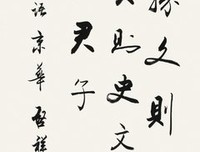 勝文則
則史文
君子
語京華啓